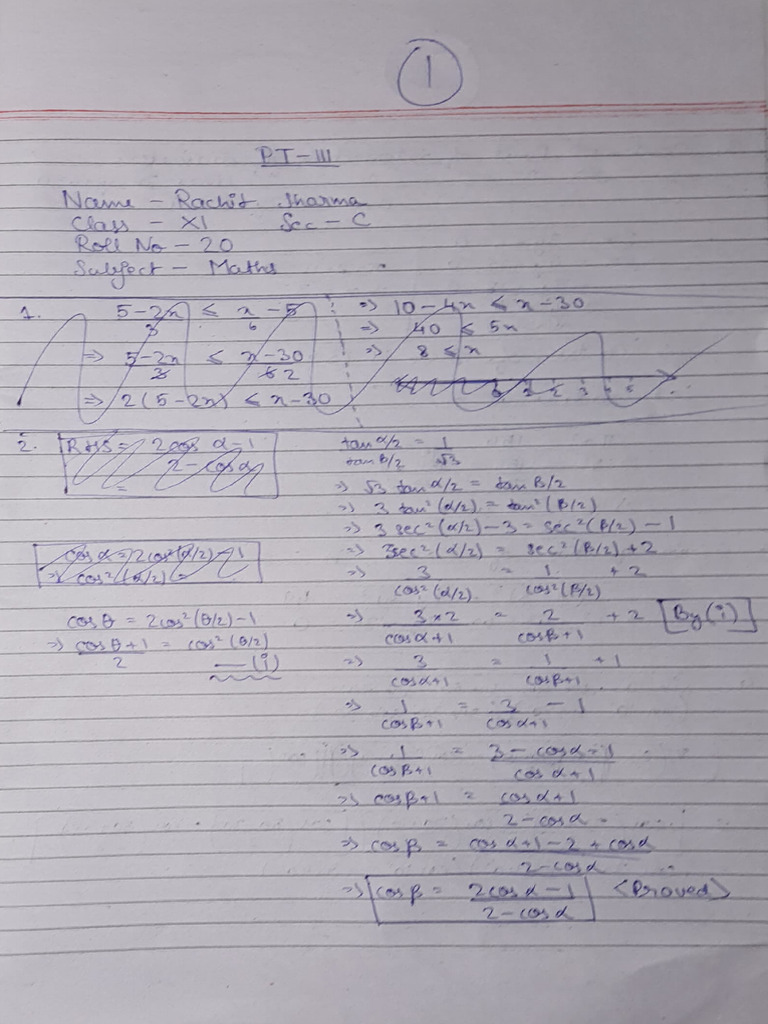 1
PT-III
Name - Rachit Sharma
Class - XI Sec - C
Roll No - 20
Subject - Maths
1. (5-2x)/3 ≤ x/6 - 5
⇒ (5-2x)/3 ≤ (x-30)/6 2
⇒ 2(5-2x) ≤ x-30
⇒ 10-4x ≤ x-30
⇒ 40 ≤ 5x
⇒ 8 ≤ x
2. RHS = (2cos α-1)/(2-cosα)
=
cosα = 2cos²(α/2)-1
⇒ cos²(α/2) =
cosθ = 2cos²(θ/2)-1
⇒ (cosθ+1)/2 = cos²(θ/2)
—(i)
(tan α/2)/(tan β/2) = 1/√3
⇒ √3 tan α/2 = tan β/2
⇒ 3 tan²(α/2) = tan²(β/2)
⇒ 3 sec²(α/2)-3 = sec²(β/2)-1
⇒ 3sec²(α/2) = sec²(β/2)+2
⇒ 3/cos²(α/2) = 1/cos²(β/2) + 2
⇒ (3×2)/(cosα+1) = 2/(cosβ+1) + 2 [By (i)]
⇒ 3/(cosα+1) = 1/(cosβ+1) + 1
⇒ 1/(cosβ+1) = 3/(cosα+1) - 1
⇒ 1/(cosβ+1) = (3-cosα-1)/(cosα+1)
⇒ cosβ+1 = (cosα+1)/(2-cosα)
⇒ cosβ = (cosα+1-2+cosα)/(2-cosα)
⇒ cosβ = (2cosα-1)/(2-cosα) <Proved>